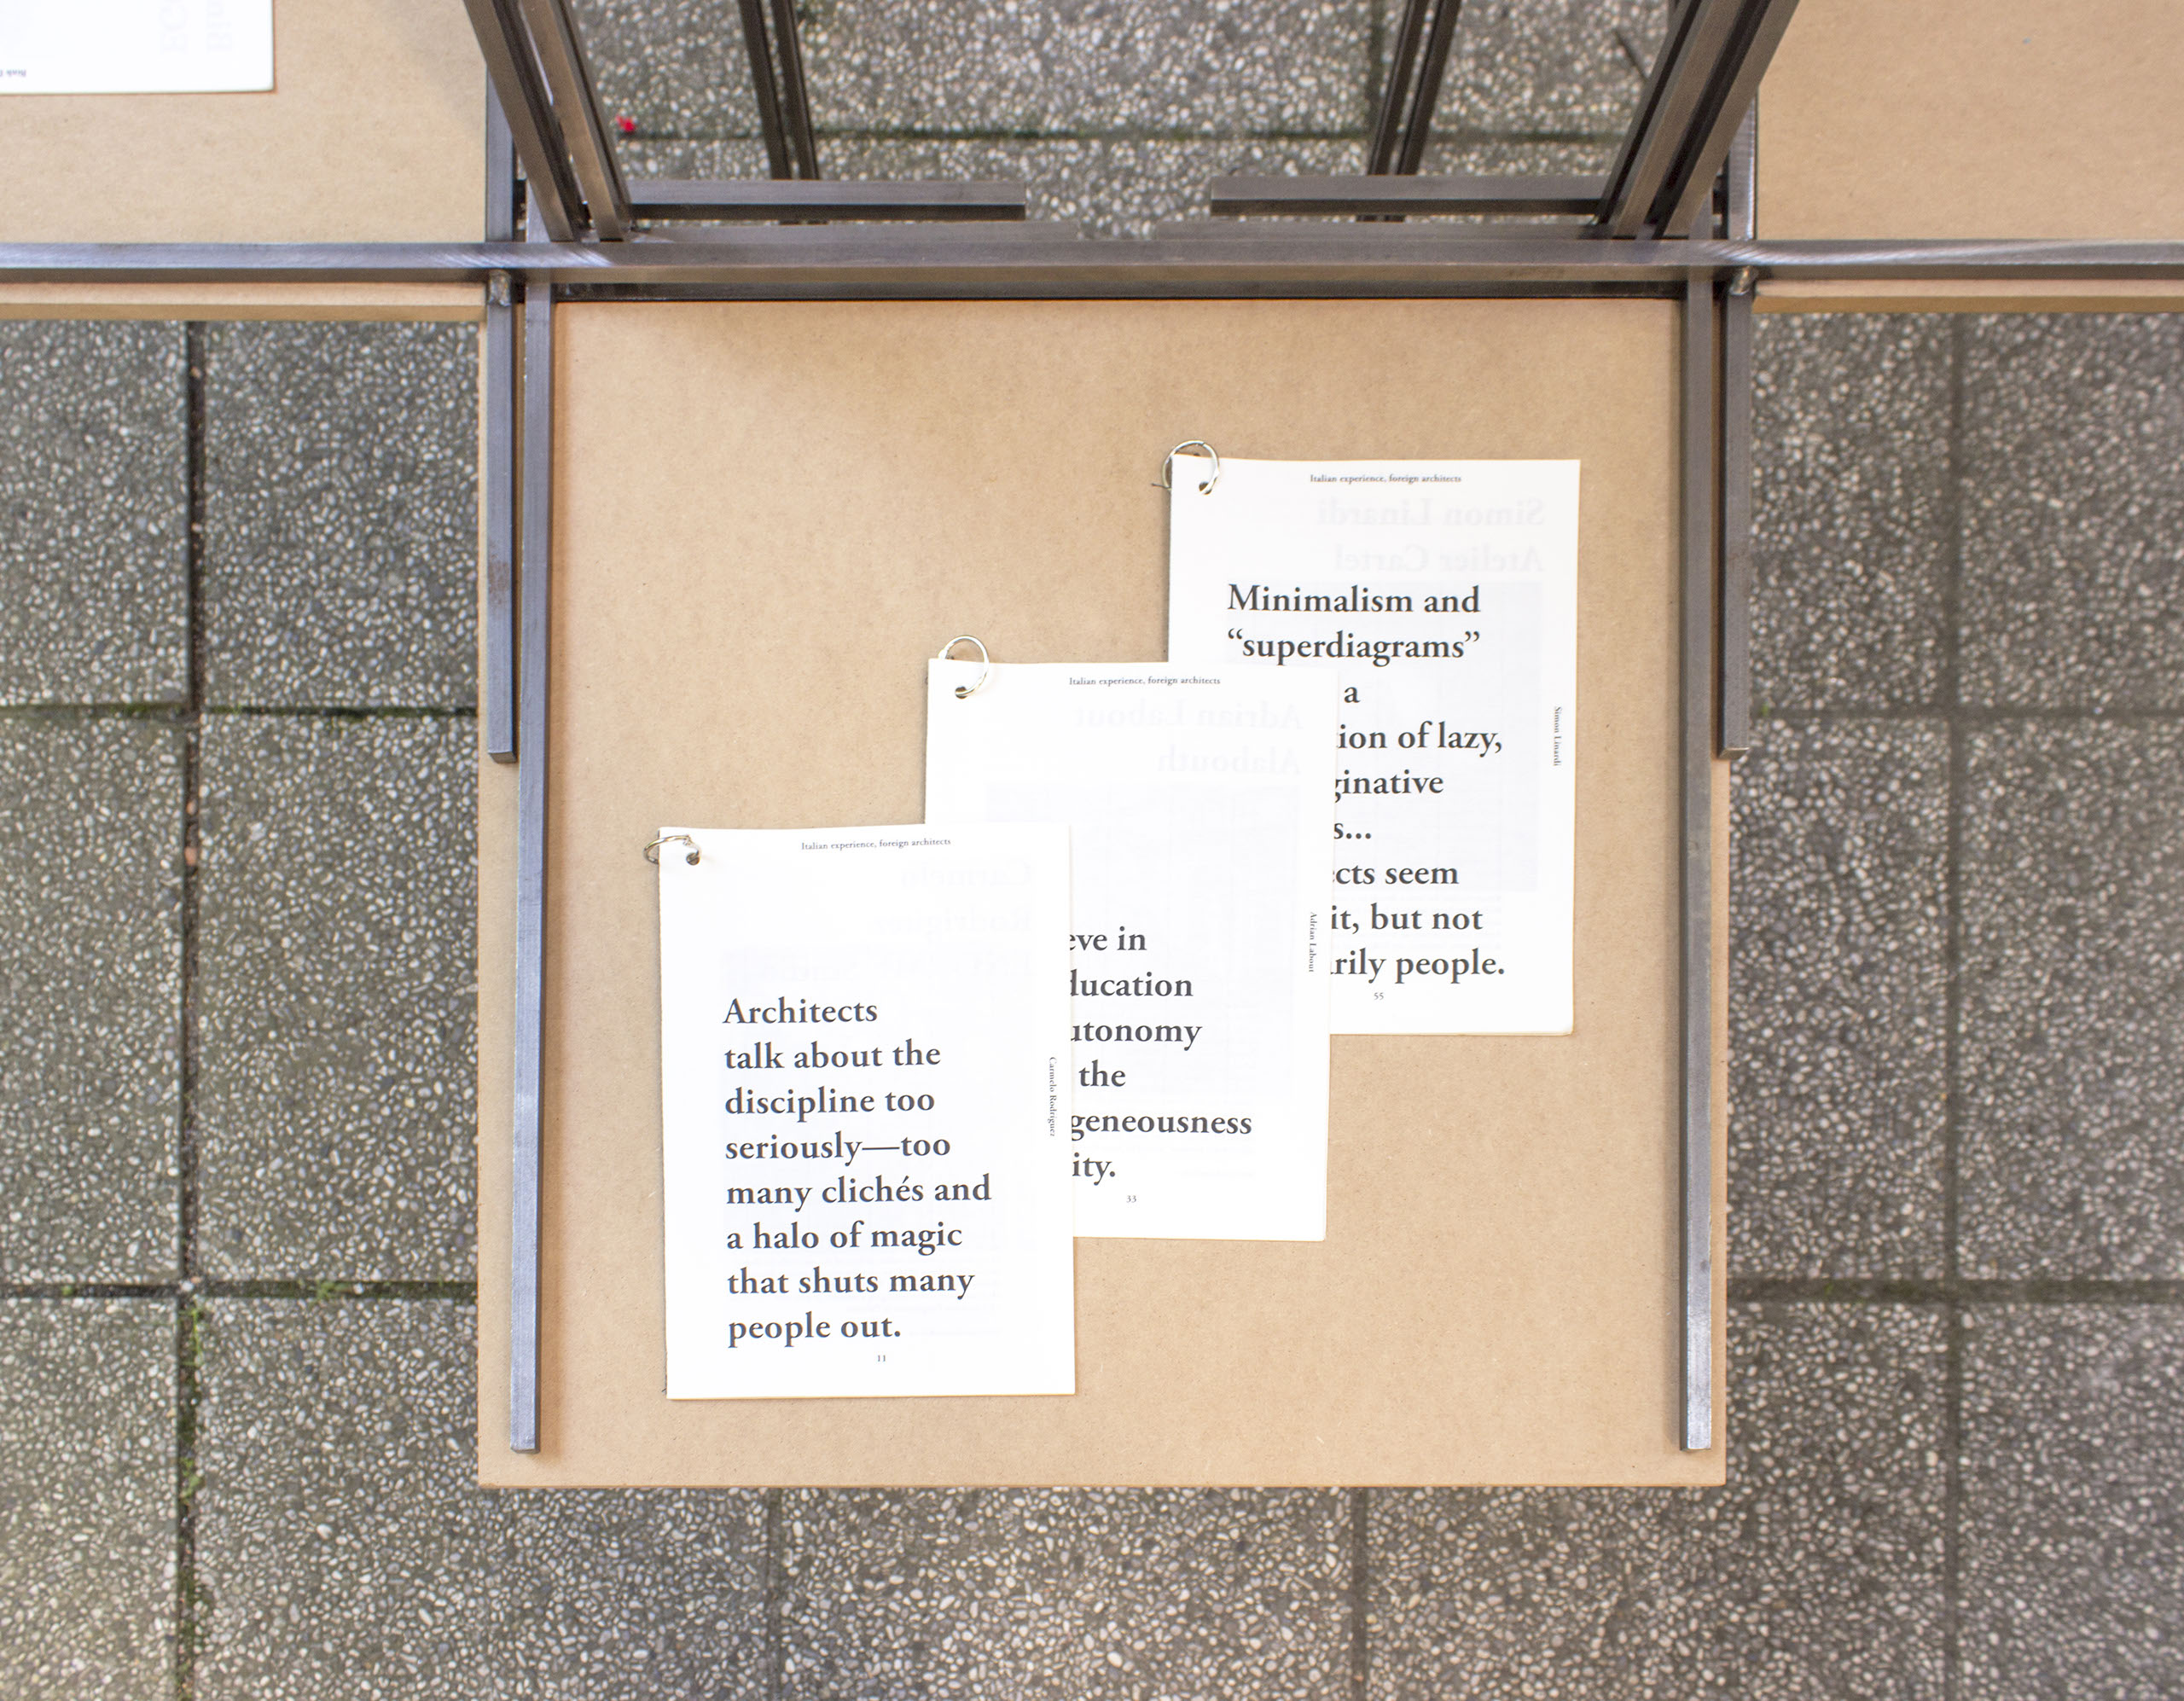 Italian experience, foreign architects
Simon Linardi
Atelier Cartel
Minimalism and
“superdiagrams”
a
ion of lazy,
ginative
s...
cts seem
it, but not
rily people.
Simon Linardi
55
Italian experience, foreign architects
Adrian Labout
Alabouth
eve in
ducation
utonomy
the
geneousness
ity.
Adrian Labout
33
Italian experience, foreign architects
Carmelo
Rodríguez
Architects
talk about the
discipline too
seriously—too
many clichés and
a halo of magic
that shuts many
people out.
Carmelo Rodríguez
11